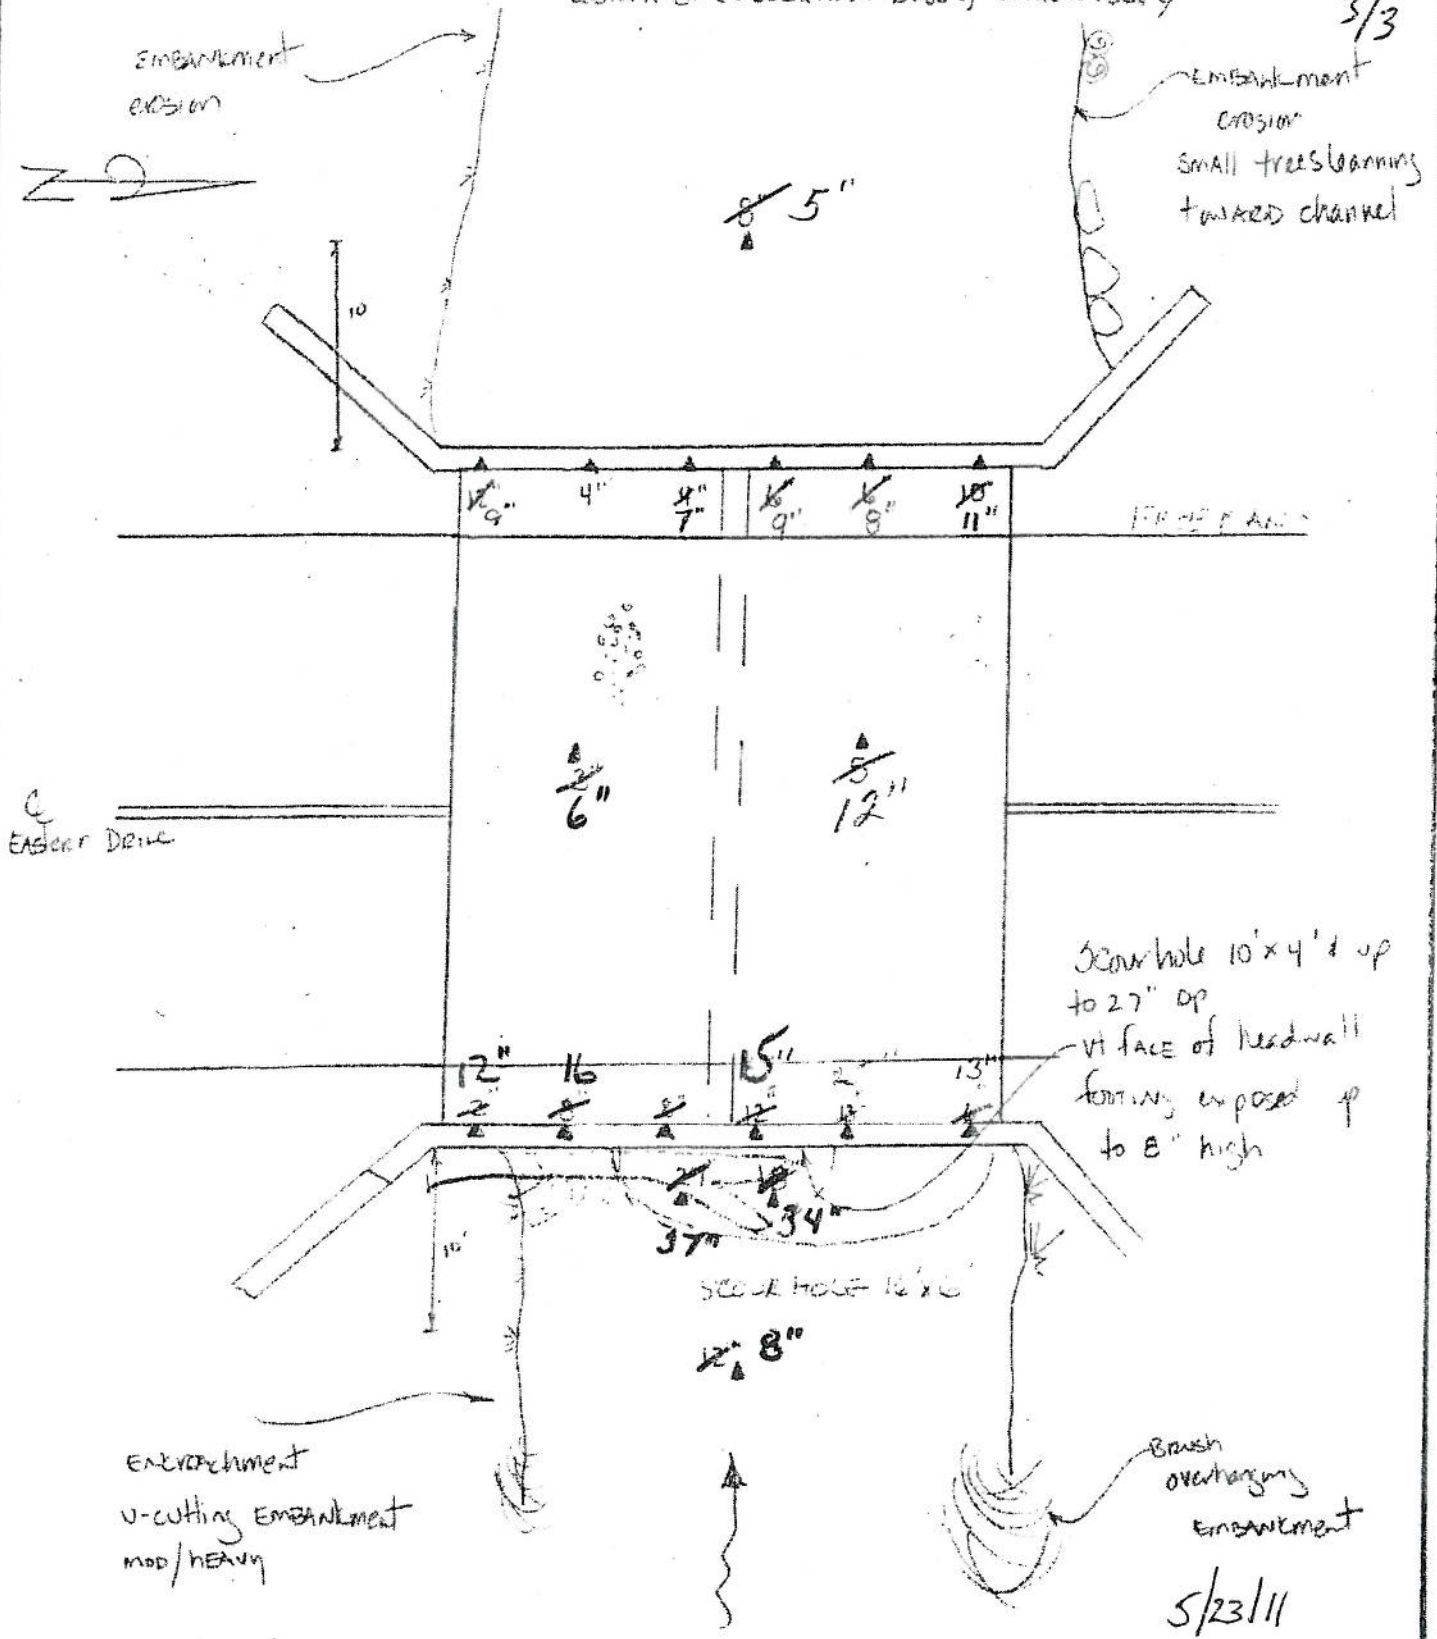 5/3
EMBANKment
erosion
EMBANKment
erosion
SMAll trees leanning
towARD channel
8" 5"
10
12" 9"
4"
4" 7"
16 9"
16 8"
10 11"
2" 6"
5 12"
EAStern Drive
Scour hole 10' x 4' & up
to 27" DP
VI fACE of headwall
footing exposed up
to 8" high
12"
16
15"
13"
2"
8"
8"
12"
37"
34"
SCOUR HOLE 16' x 6'
10'
12" 8"
ENcroAchment
U-cutting EMBANKment
MOD/HEAVY
BRUSH
overhanging
EMBANKment
5/23/11